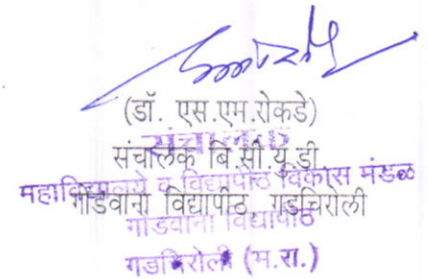 (डॉ. एस.एम.रोकडे)
संचालक
संचालक बि.सी.यु.डी.
महाविद्यालये व विद्यापीठ विकास मंडळ
गोंडवाना विद्यापीठ, गडचिरोली
गोंडवाना विद्यापीठ
गडचिरोली (म.रा.)